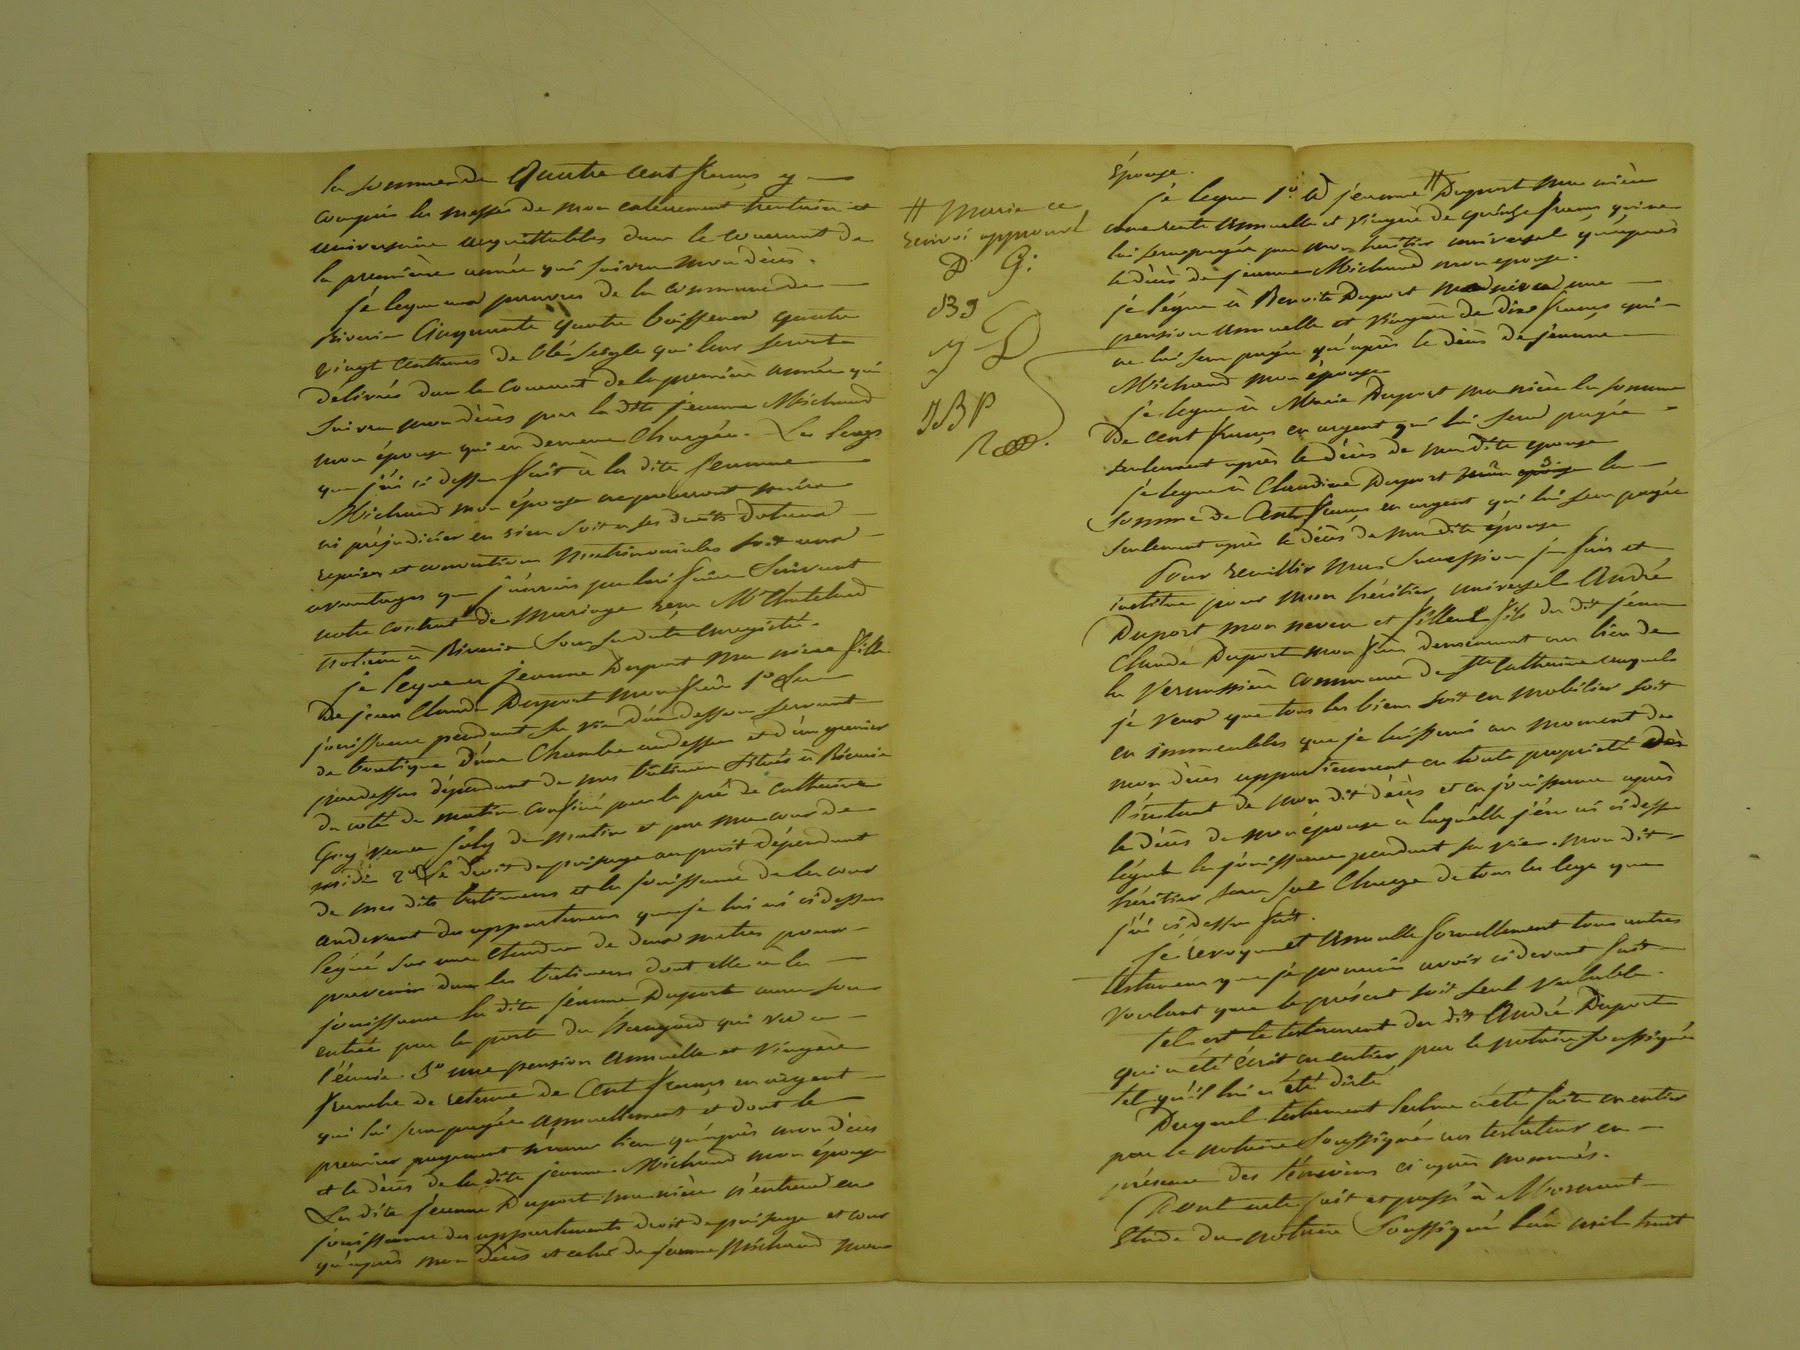 la somme de Quatre cent francs y
compris les messes de mon enterrement trentain et
universaire acquittables dans le courrant de
la première année qui suivra mon décès.
je legue aux pauvres de la commune de
Riverie Cinquante quatre boisseaux quatre
vingt centiemes de blé seigle qui leur seront
délivrés dans le courrant de la première année qui
suivra mon décès par la dite jeanne Michaud
mon épouse qui en demeure chargée. Les legs
que j'ai ci dessus fait à la dite jeanne
Michaud mon épouse ne pourront nuire
ni préjudicier en rien soit a ses droits dotaux
reprises et conventions matrimoniales soit aux
avantages que j'aurais pu lui faire suivant
notre contrat de mariage reçu Me
notaire à Riverie sous sa date enregistré.
je legue a jeanne Duport ma nièce fille
De jean Claude Duport mon frère 1° La
jouissance pendant sa vie d'un dessous servant
de boutique d'une Chambre au dessus et d'un grenier
par dessus dépendant de mes batimens situés à Riverie
du coté de matin confiné par le pré de Catherine
Guy veuve joly de matin et par ma cour de
midi 2° Le droit de puisage au puit dépendant
de mes dits batimens et la jouissance de la cour
au devant des appartemens que je lui ai ci dessus
légué sur une étendue de deux metres pour
parvenir dans les batimens dont elle a la
jouissance la dite jeanne Duport aura son
entrée par la porte du hangard qui va a
l'écurie. 3° une pension annuelle et viagère
franche de retenue de Cent francs en argent
qui lui sera payée annuellement et dont le
premier payement n'aura lieu qu'après mon décès
et le décès de la dite jeanne Michaud mon épouse
La dite jeanne Duport ma nièce n'entrera en
jouissance des appartements droit de puisage et cour
qu'après mon décès et celui de jeanne Michaud mon
# Marie ce
renvoi approuvé
D G:
B g
y D
JBP
épouse.
je legue 1° à jeanne # Duport ma nièce
une rente annuelle et viagere de quinze francs qui ne
lui sera payée par mon héritier universel qu'après
le décès de jeanne Michaud mon épouse.
je légue à Benoite Duport ma nièce une
pension annuelle et viagere de dix francs qui
ne lui sera payée qu'après le décès de jeanne
Michaud mon épouse
je legue à Marie Duport ma nièce la somme
De cent francs en argent qui lui sera payée
seulement après le décès de ma dite épouse
je legue à Claudine Duport la
somme de Cent francs en argent qui lui sera payée
seulement après le décès de ma dite épouse
Pour recueillir ma succession je fais et
institue pour mon héritier universel André
Duport mon neveu et filleul fils du dit jean
Claude Duport mon frère demeurant au lieu de
la Vernassière commune de Ste Catherine auquel
je veux que tous les biens soit en mobilier soit
en immeubles que je laisserai au moment de
mon décès appartiennent en toute propriété dès
l'instant de mon dit décès et en jouissance après
le décès de mon épouse à laquelle j'en ai ci dessus
légué la jouissance pendant sa vie. mon dit
héritier sera seul Chargé de tous les legs que
j'ai ci dessus fait.
je révoque et annulle formellement tous autres
testamens que je pourrais avoir ci devant fait
voulant que le présent soit seul valable.
tel est le testament du dit André Duport
qui a été écrit en entier par le notaire soussigné
tel qu'il lui a été dicté
Duquel testament lecture a été faite en entier
par le notaire soussigné au testateur en
présence des témoins ci après nommés.
Dont acte fait et passé à Mornant
Etude du notaire soussigné l'an mil huit